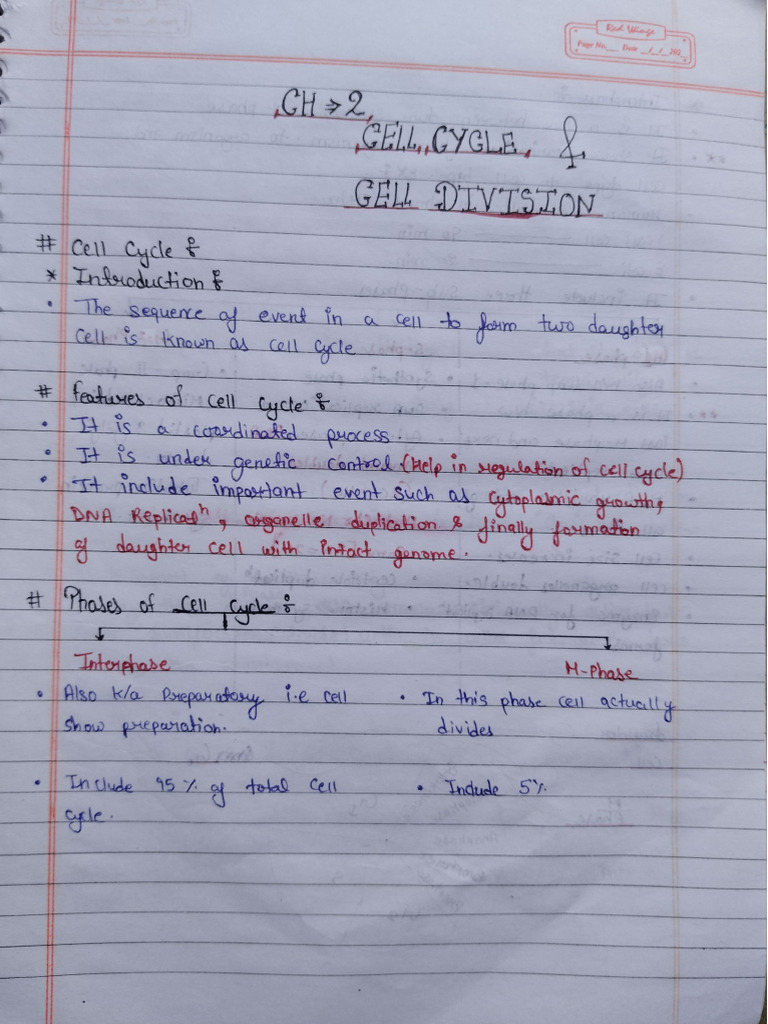 Red Wings
Page No. Date _/_/_202_
CH ⇒ 2
CELL CYCLE &
CELL DIVISION
# Cell Cycle :
* Introduction :
• The sequence of event in a cell to form two daughter
cell is known as cell cycle
# features of cell cycle :
• It is a coordinated process.
• It is under genetic control (Help in regulation of cell cycle)
• It include important event such as cytoplasmic growth,
DNA Replicatⁿ, organelle duplication & finally formation
of daughter cell with intact genome.
# Phases of cell cycle :
Interphase M-Phase
• Also k/a Preparatory i.e cell • In this phase cell actually
show preparation. divides
• Include 95% of total cell • Include 5%
cycle.